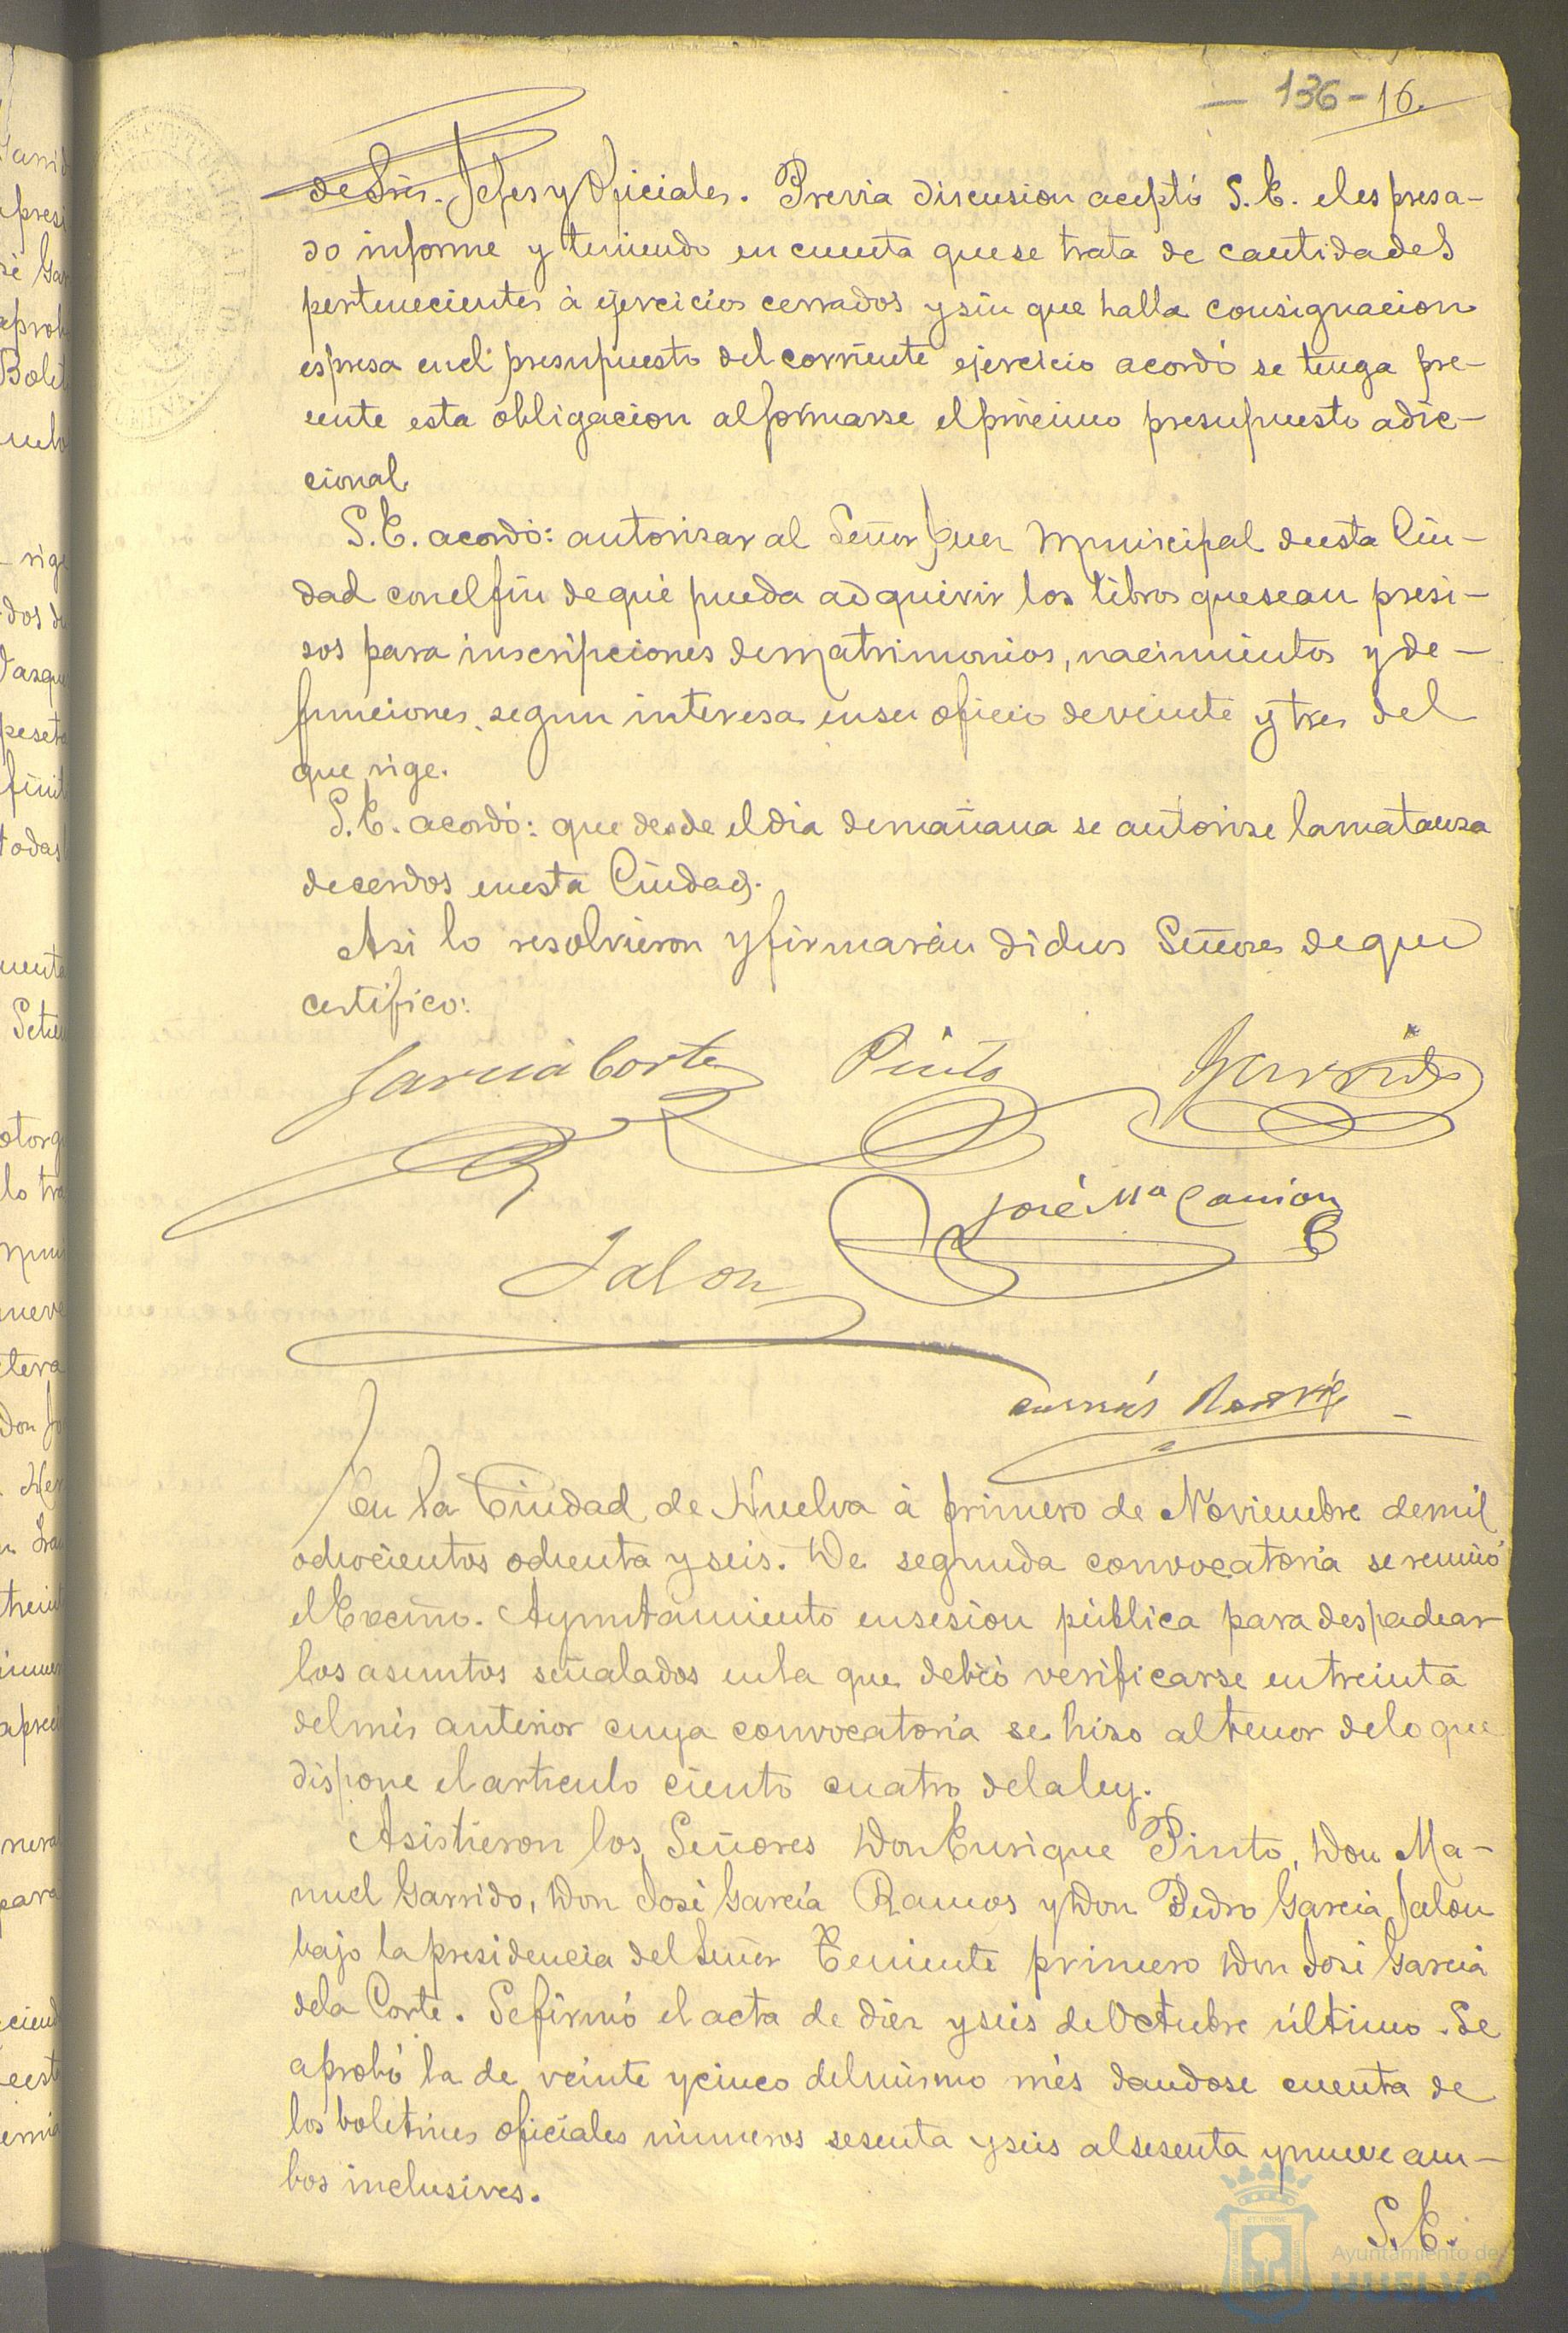 136 - 16.
de Sres. Jefes y Oficiales. Previa discusion aceptó S. E. el espresa-
do informe y teniendo en cuenta que se trata de cantidades
pertenecientes à ejercicios cerrados y sin que halla consignacion
espresa en el presupuesto del corriente ejercicio acordó se tenga pre-
sente esta obligacion al formarse el prócimo presupuesto adic-
cional.
S. E. acordó: autorizar al Señor Juez Municipal de esta Ciu-
dad con el fin de que pueda adquirir los libros que sean presi-
sos para inscripciones de matrimonios, nacimientos y de-
funciones segun interesa en su oficio de veinte y tres del
que rige.
S. E. acordó: que desde el dia de mañana se autorize la matanza
de cerdos en esta Ciudad.
Asi lo resolvieron y firmarán dichos Señores de que
certifico:
Garcia Corte Pinto Garrido
José Mª
Jalon
en la Ciudad de Huelva à primero de Noviembre de mil
ochocientos ochenta y seis. De segunda convocatoria se reunió
el Excmo. Ayuntamiento en sesion pública para despachar
los asuntos señalados en la que debió verificarse en treinta
del més anterior cuya convocatoria se hizo al tenor de lo que
dispone el articulo ciento cuatro de la ley.
Asistieron los Señores Don Enrique Pinto, Don Ma-
nuel Garrido, Don José Garcia Ramos y Don Pedro Garcia Jalon
bajo la presidencia del Señor Teniente primero Don José Garcia
de la Corte. Se firmó el acta de diez y seis de Octubre último. Se
aprobó la de veinte y cinco del mismo més dandose cuenta de
los boletines oficiales números sesenta y seis al sesenta y nueve am-
bos inclusives.
S. E.
Ayuntamiento de
HUELVA